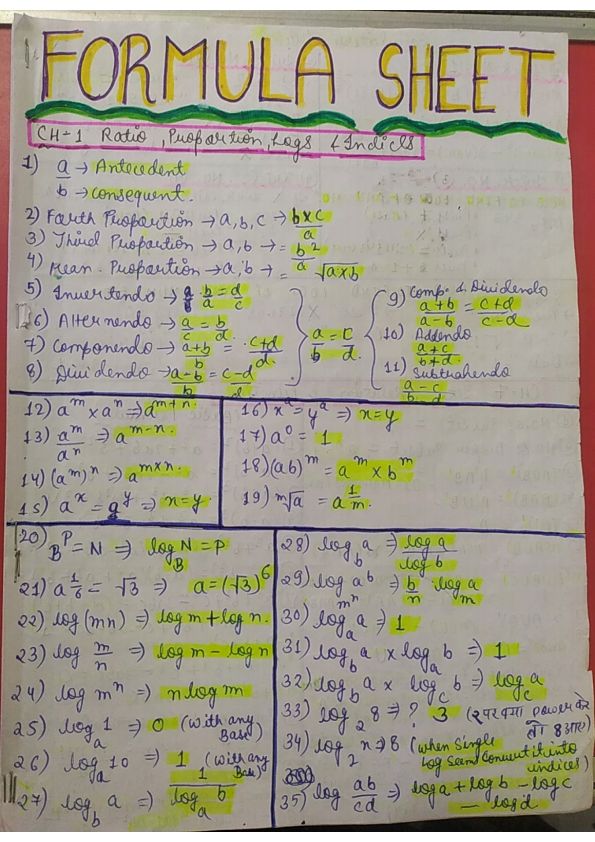 FORMULA SHEET
CH-1 Ratio, Proportion, Logs & Indices
1) a/b a → Antecedent
b → consequent.
2) Fourth Proportion → a, b, c → b×c/a
3) Third Proportion → a, b → = b²/a
4) Mean. Proportion → a, b → = √a×b
5) Invertendo → b/a = d/c
6) Alternendo → a/c = b/d
7) Componendo → a+b/b = c+d/d
8) Dividendo → a-b/b = c-d/d
a/b = c/d
9) Comp. & Dividendo
a+b/a-b = c+d/c-d
10) Addendo
a+c/b+d.
11) Subtrahendo
a-c/b-d
12) aᵐ × aⁿ ⇒ aᵐ⁺ⁿ.
13) aᵐ/aⁿ ⇒ aᵐ⁻ⁿ.
14) (aᵐ)ⁿ ⇒ aᵐˣⁿ.
15) aˣ = aʸ ⇒ x=y.
16) xᵃ = yᵃ ⇒ x=y
17) a⁰ = 1
18) (ab)ᵐ = aᵐ × bᵐ
19) ᵐ√a = a^1/m.
20) Bᴾ = N ⇒ log_B N = P
21) a^1/6 = √3 ⇒ a = (√3)⁶
22) log(mn) ⇒ logm + logn.
23) log m/n ⇒ logm - logn
24) log mⁿ ⇒ n log m
25) log_a 1 ⇒ 0 (with any
Base)
26) log_a 10 ⇒ 1 (with any
Base)
27) log_b a ⇒ 1/log_a b
28) log_b a ⇒ log a/log b
29) log_mⁿ aᵇ ⇒ b/n log_m a
30) log_a a ⇒ 1
31) log_b a × log_a b ⇒ 1
32) log_b a × log_c b ⇒ log_c a
33) log_2 8 ⇒ ? 3 (2 पर क्या power करे
तो 8 आए)
34) log_2 x ⇒ 8 (when single
log seem convert it into
indices)
35) log ab/cd ⇒ loga + logb - logc
- logd